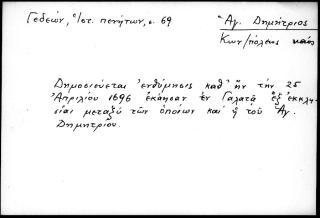 Γεδεών, Ἱστ. πενήτων, σ. 69
Ἅγ. Δημήτριος
Κων/πόλεως ναός
Δημοσιεύεται ἐνθύμησις καθ' ἥν τήν 25
Ἀπριλίου 1696 ἐκάησαν ἐν Γαλατᾷ ἕξ ἐκκλη-
σίαι μεταξύ τῶν ὁποίων καί ἡ τοῦ Ἁγ.
Δημητρίου.